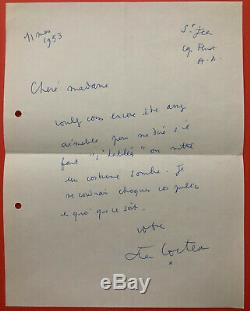 11 mai
1953
St Jean
Cap Ferrat
A. M.
Chère madame
voulez vous encore être assez
aimable pour me dire s'il
faut "s'habiller" ou mettre
un costume sombre. Je
ne voudrais choquer
qui que ce soit.
votre
Jean Cocteau
*